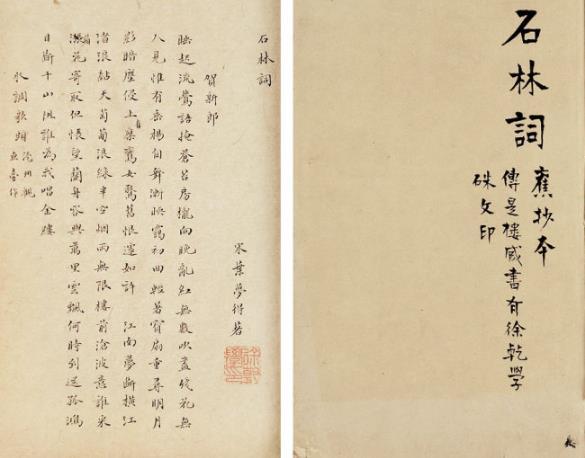 石林詞
舊抄本
傳是樓藏書有徐乾學
硃文印
石林詞
宋葉夢得著
賀新郎
睡起流鶯語掩蒼苔房櫳向晚亂紅無數吹盡殘花無
人見惟有垂楊自舞漸暖靄初回輕暑寶扇重尋明月
影暗塵侵上有乘鸞女驚舊恨遽如許 江南夢斷橫江
渚浪黏天葡萄漲綠半空烟雨無限樓前滄波意誰采
蘋花寄取但悵望蘭舟容與萬里雲颿何時到送孤鴻
目斷千山阻誰為我唱金縷
水調歌頭 濠州觀魚臺作